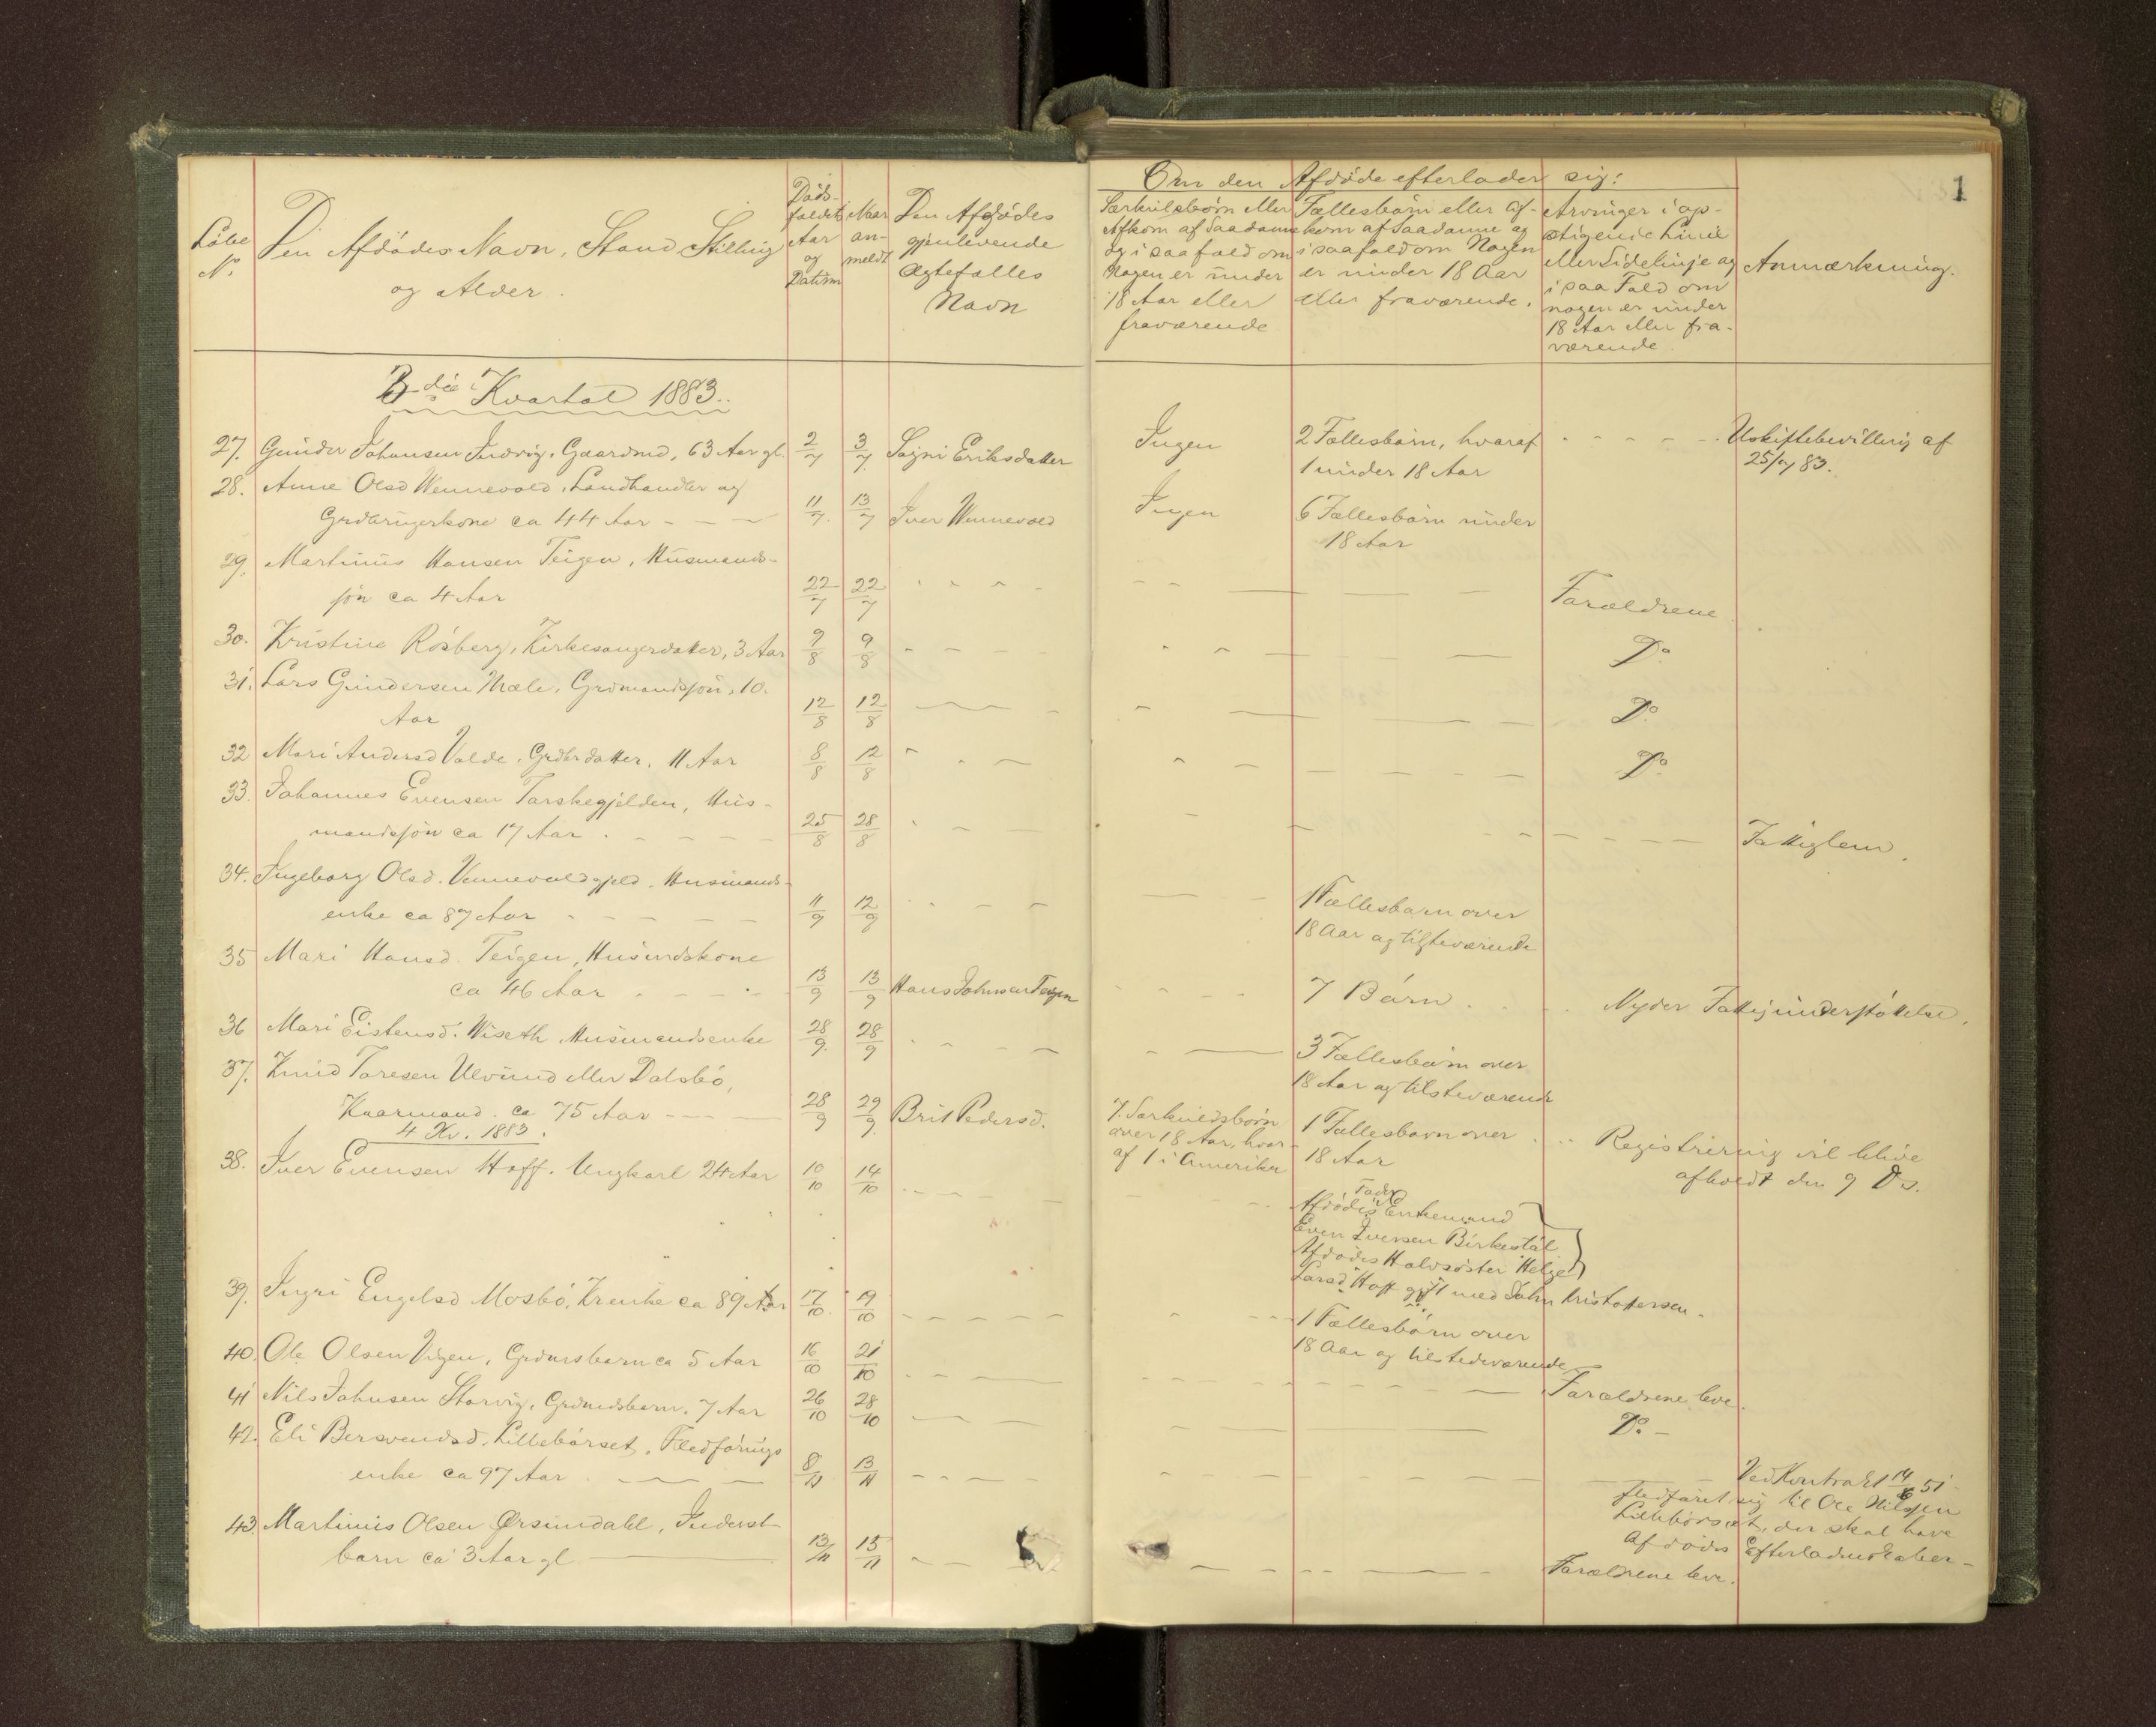 1
Løbe No.
Den Afdødes Navn, Stand, Stilling
og Alder.
Døds-
faldets
Aar
og
Datum
Naar
an-
meldt
Den Afdødes
gjenlevende
Ægtefælles
Navn
Om den Afdøde efterlader sig:
Særkuldsbørn eller
Afkom af Saadanne
og i saafald om
Nogen er under
18 Aar eller
fraværende
Fællesbørn eller Af-
kom af Saadanne og
i saafald om Nogen
er under 18 Aar
eller fraværende.
Arvinger i op-
stigende Linie
eller Sidelinje og
i saa Fald om
nogen er under
18 Aar eller fra-
værende.
Anmærkning.
3die Kvartal 1883.
27. Gunder Johansen Indvig, Gaardmd, 63 Aar gl. 2/7 3/7 Signi Eriksdatter Ingen 2 Fællesbørn, hvoraf Uskiftebevilling af
1 under 18 Aar 25/7 83.
28. Anne Olsd Wennevold, Landhandler og
Grdbrugerkone ca 44 Aar 11/7 13/7 Iver Wennevold Ingen 6 Fællesbørn under
18 Aar
29. Martinus Hansen Teigen, Husmands-
søn ca 4 Aar 22/7 22/7 Forældrene
30. Kristine Røsberg, Kirkesangerdatter, 3 Aar 9/8 9/8 Do
31. Lars Gundersen Mæle, Grdmandssøn, 10.
Aar 12/8 12/8 Do
32 Mari Andersd Volde, Grdbrdatter, 11 Aar 8/8 12/8 Do
33. Johannes Evensen Torskegjelden, Hus-
mandssøn ca 17 Aar 25/8 28/8 Fattiglem.
34. Ingeborg Olsd. Vennevoldgjeld. Husmands-
enke ca 87 Aar 11/9 12/9 1 Fællesbarn over
18 Aar og tilsteværende
35 Mari Hansd. Teigen, Husmdskone
ca 46 Aar 13/9 13/9 Hans Johnsen Teigen 7 Børn Nyder Fattigunderstøttelse.
36 Mari Eistensd. Wiseth, Husmandsenke 28/9 28/9 3 Fællesbørn over
18 Aar og tilsteværende
37. Knud Toresen Ulvund eller Dalsbø,
Kaarmand. ca 75 Aar 28/9 29/9 Brit Pedersd. 7. Særkuldsbørn
over 18 Aar, hvor-
af 1 i Amerika 1 Fællesbarn over
18 Aar Registrering vil blive
afholdt den 9 Ds.
4 Kv. 1883.
38. Iver Evensen Hoff. Ungkarl 24 Aar 10/10 14/10 Afdødes Fader Enkemand
Even Iversen Birkestøl
Afdødes Halvsøster Helge
Larsd Hoff gift med John Kristofersen.
39. Ingri Engelsd Mosbø, Krenke ca 89 Aar 17/10 19/10 1 Fællesbørn over
18 Aar og tilstedeværende
40. Ole Olsen Vigen, Grdmsbarn ca 5 Aar 16/10 21/10 Forældrene leve.
41 Nils Johnsen Storvig, Grdmdsbarn, 7 Aar 26/10 28/10 Do
42. Eli Bersvendsd. Lillebørset, Fledførings
enke ca 97 Aar 8/11 13/11 Ved Kontrakt 14/6 51
fledføret sig til Ole Nilssen
Lillebørset, der skal have
Afdødes Efterladenskaber
43. Martinus Olsen Ørsundahl, Inderst-
barn ca 3 Aar gl 13/11 15/11 Forældrene leve.